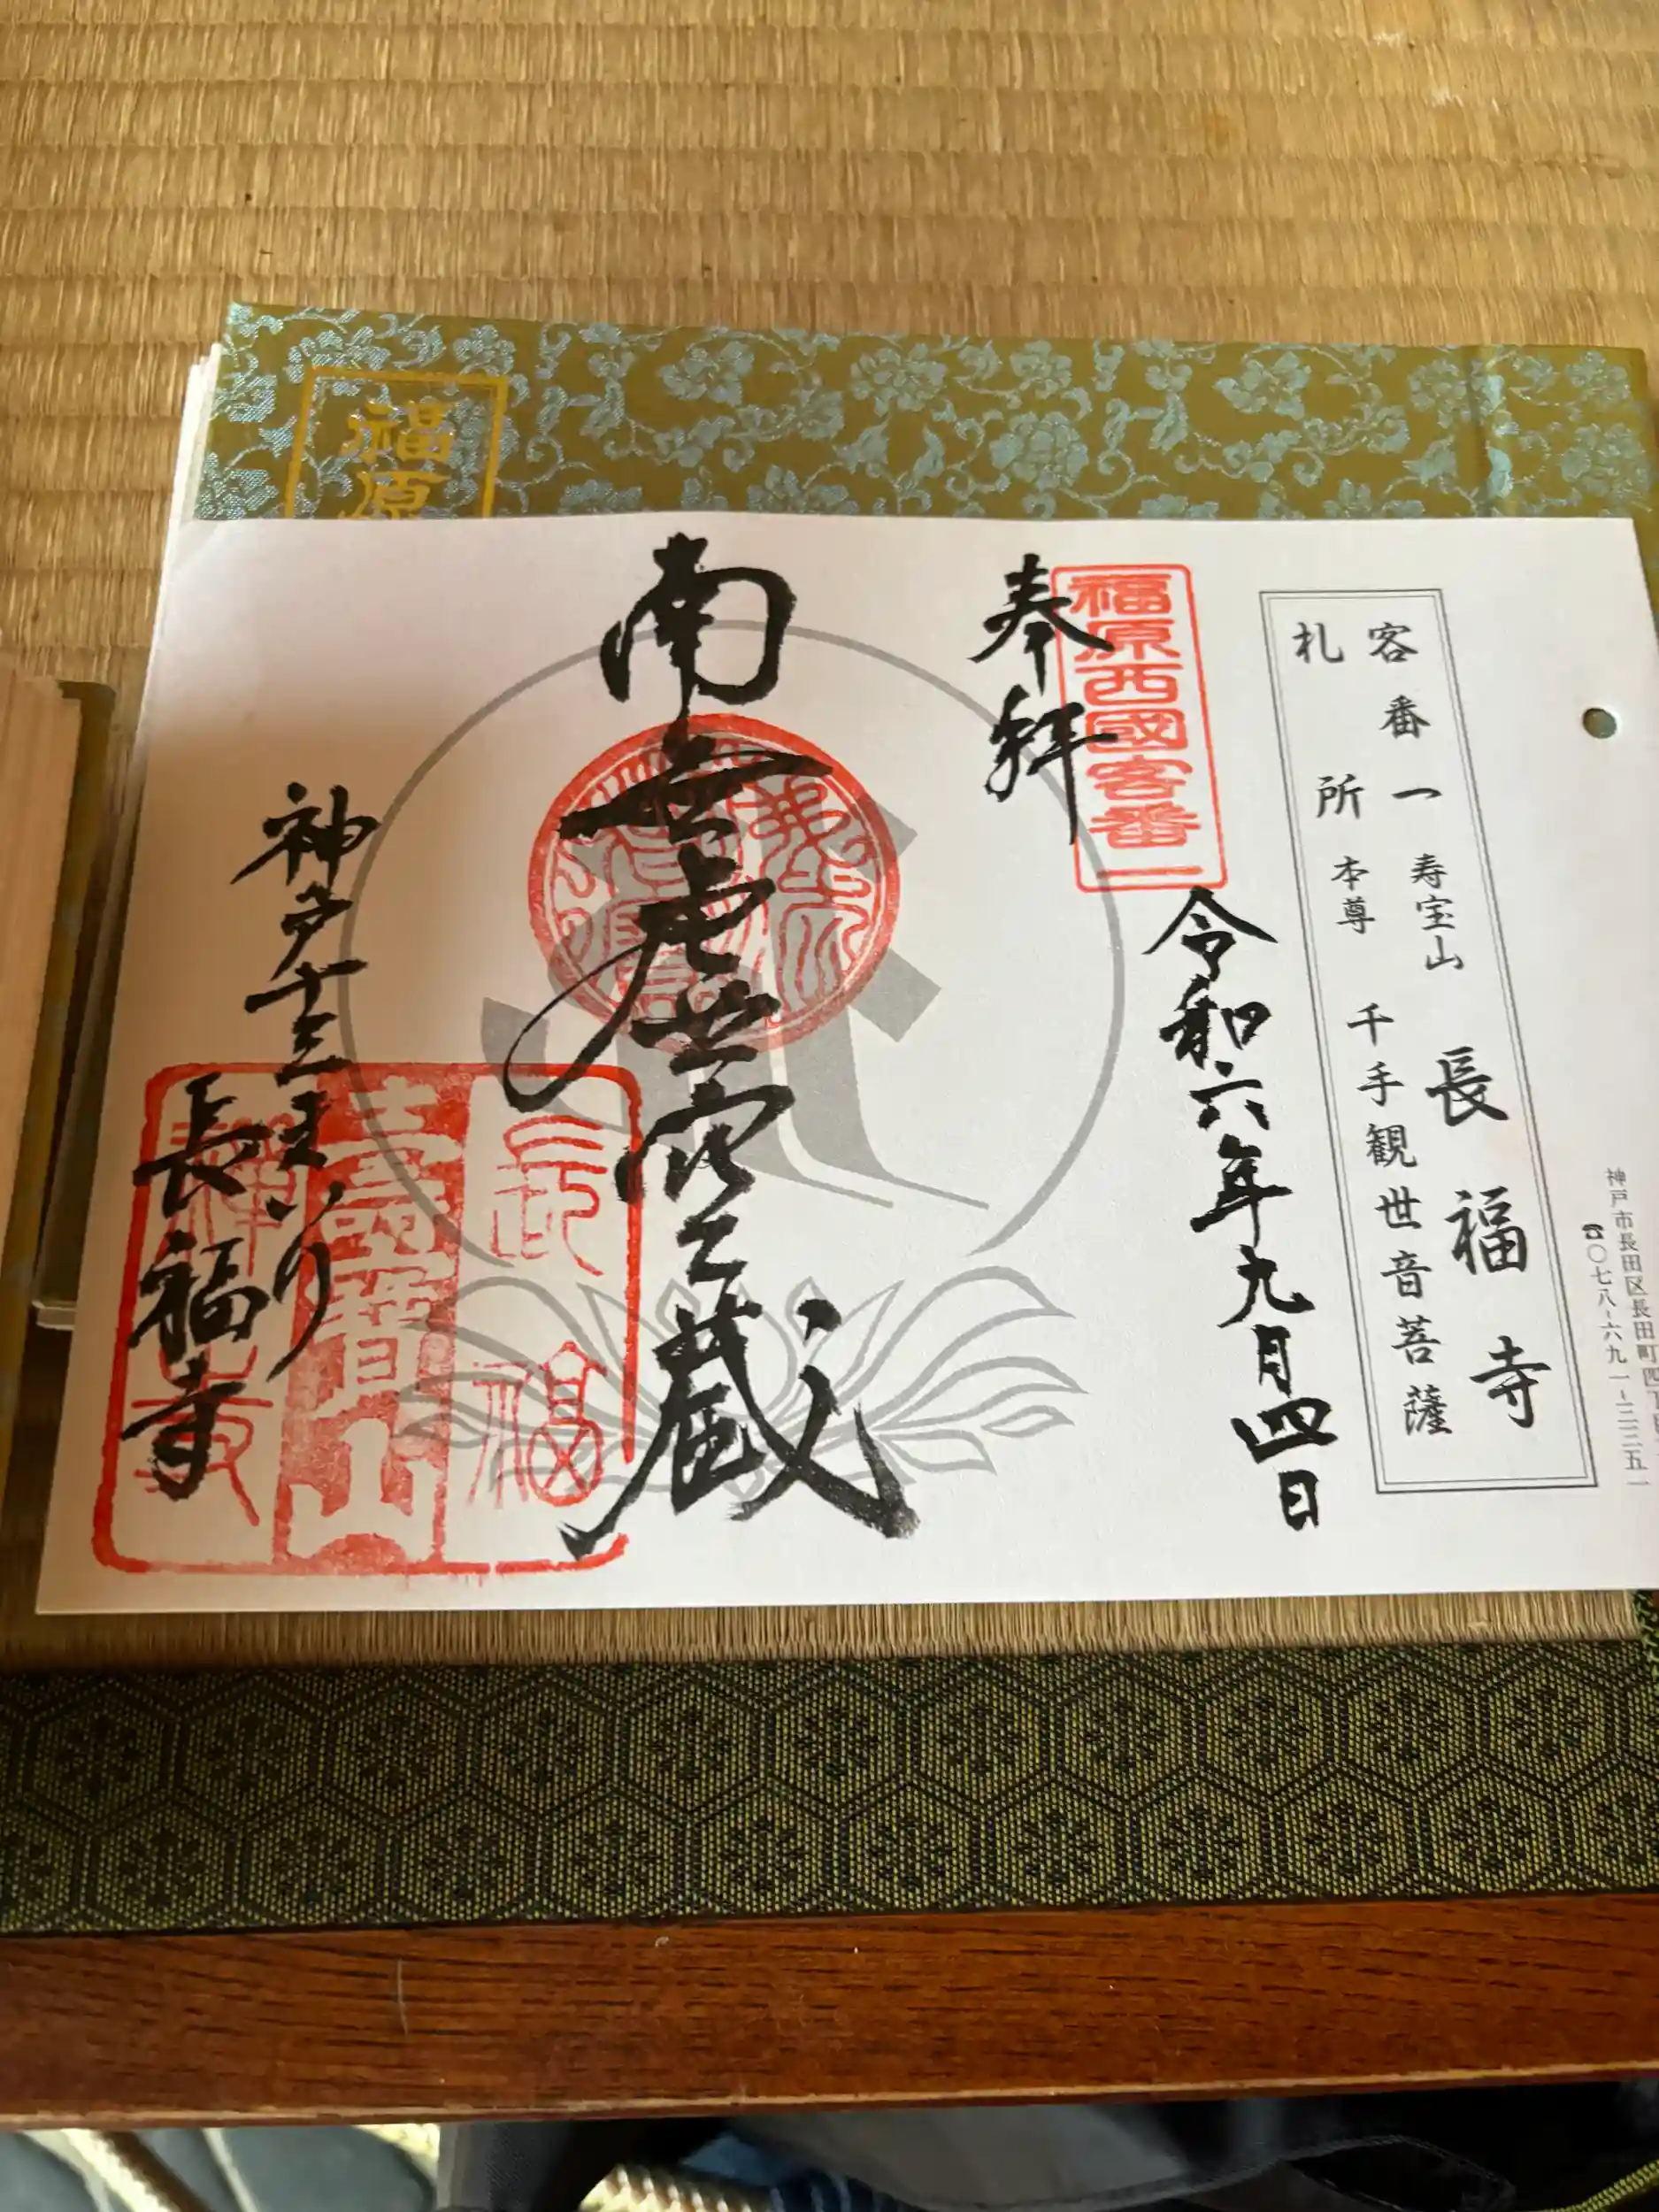 福原
客番一 寿宝山 長福寺
札所 本尊 千手観世音菩薩
神戸市長田区長田町四丁目
☎〇七八-六九一-二三五一
福原西國客番一
奉拝
令和六年九月四日
南無虚空蔵
神戸十三まいり
長福寺
長福
壽寶山